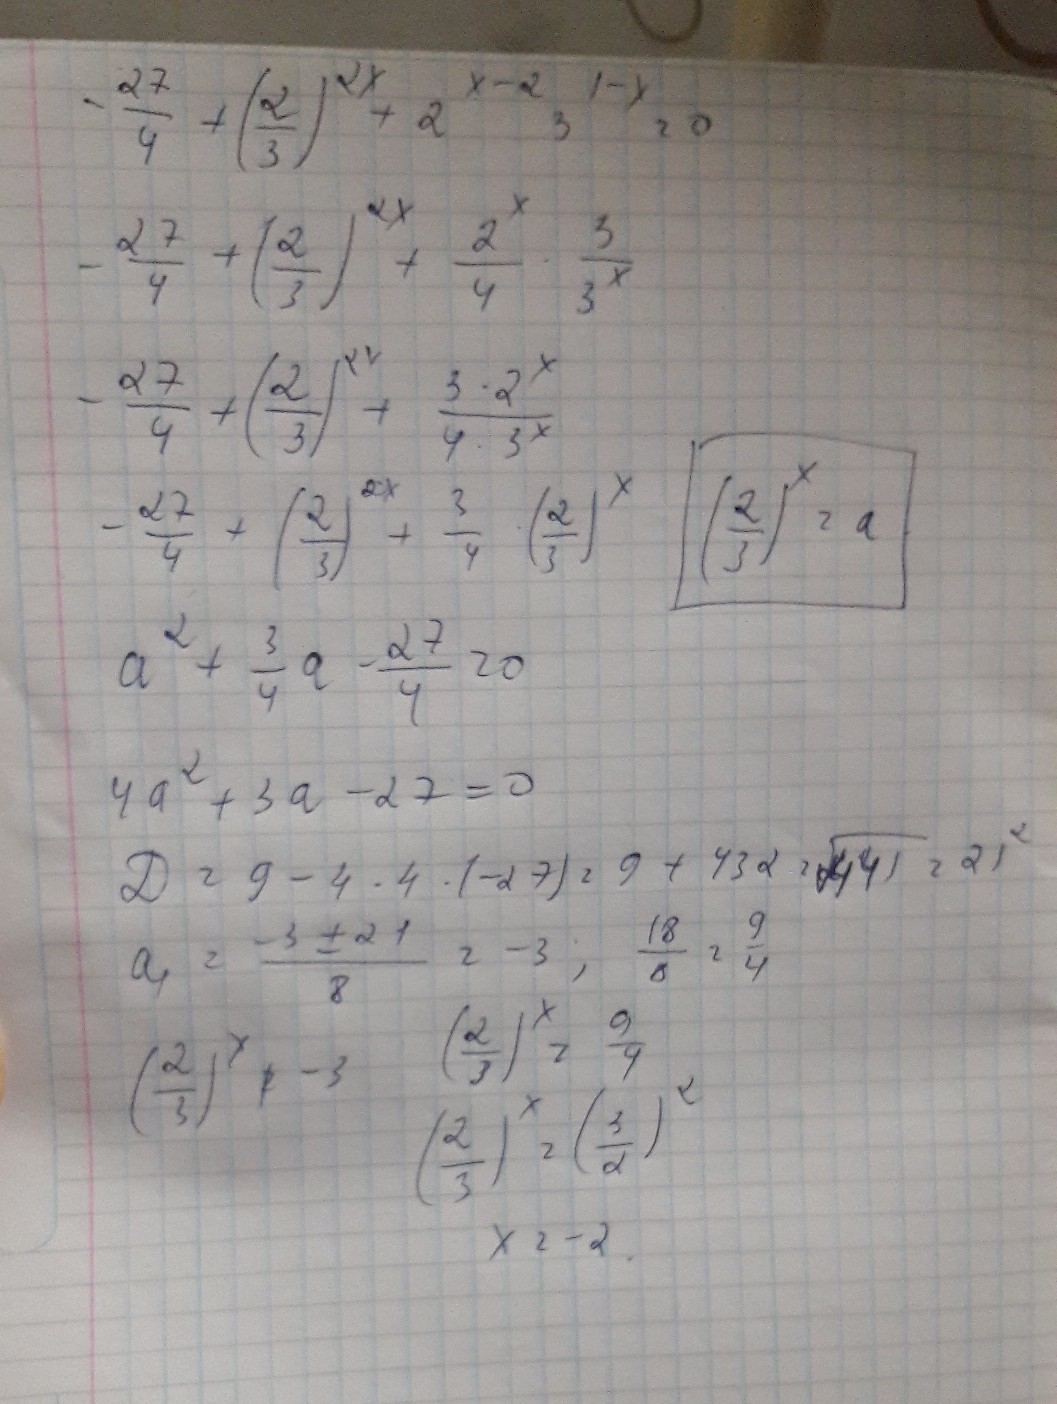 -27/4 + (2/3)^2x + 2^x-2 3^1-x = 0
-27/4 + (2/3)^2x + 2^x/4 · 3/3^x
-27/4 + (2/3)^2x + 3·2^x/4·3^x
-27/4 + (2/3)^2x + 3/4 · (2/3)^x
(2/3)^x = a
a^2 + 3/4 a - 27/4 = 0
4a^2 + 3a - 27 = 0
D = 9 - 4·4·(-27) = 9 + 432 = √441 = 21^2
a₁ = -3±21/8 = -3; 18/8 = 9/4
(2/3)^x ≠ -3
(2/3)^x = 9/4
(2/3)^x = (3/2)^2
x = -2.